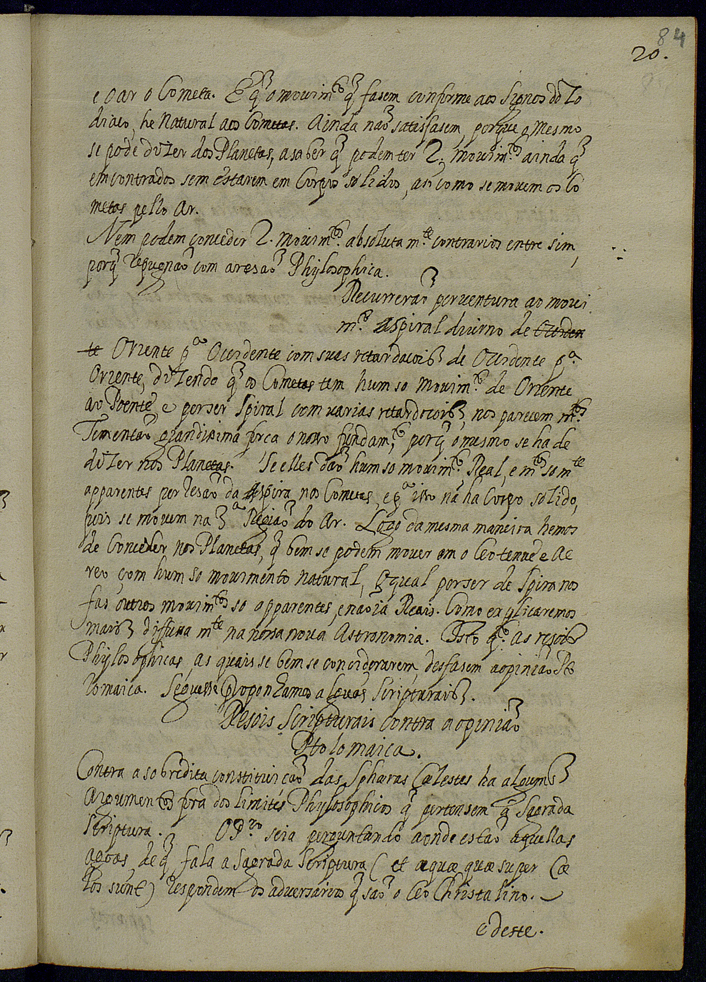 84
20.
e o ar o Cometa. E q̃ o mouim.to q̃ fasem conforme aos Signos do Zo
diaco, he Natural aos Cometas. Ainda não satisfasem, porque o Mesmo
se pode dizer dos Planetas, a saber q̃ podem ter 2. mouim.tos ainda q̃
emcontrados sem estarem em Corpo solido, asi como se mouem os Co
metas pello Ar.
Nem podem conceder 2. mouim.tos absoluta m.te contrarios entre sim,
porq̃ repugnaõ com a resaõ Phylosophica.
Recurreraõ perventura ao moui
m.to aspiral diurno de
te Oriente p.a Occidente com suas retardacois de Occidente p.a
Oriente, dizendo q̃ os Cometas tem hum so mouim.to de Oriente
ao Poente, e por ser spiral com varias retardocois, nos parecem m.tos.
Tementaõ grandisima forca o nosso fundam.to, porq̃ o mesmo se ha de
dizer nos Planetas. Se elles daõ hum so mouim.to Real, e m.tos som.te
apparentes per resaõ da aspira, nos Cometas, e p.a isso na ha Corpo solido,
pois se mouem na 3.a Regiaõ do Ar. Logo da mesma maneira hemos
de Conceder nos Planetas, q̃ bem se podem mouer em o Ceo tenue e Ae
reo com hum so mouimento natural, o qual por ser de Spira nos
fas outros mouim.tos so apparentes, e naõ ia Reais. Como explicaremos
mais diffusa m.te na nossa noua Astronomia. Isto q.to as resois
Phylosophicas, as quais se bem se conciderarem desfasem a opiniaõ Pto
lomaica. Seguesse proponhamos alguas Scripturais.
Resois Scripturais contra a opiniaõ
Ptolomaica.
Contra a sobredita constituicaõ das Spharas Cælestes ha alguns
Argumentos fora dos limites Phylosophicos q̃ pertensem a Sagrada
Scriptura. O P.ro seia perguntando aonde estaõ aquellas
agoas, de q̃ fala a Sagrada Scriptura (et aquæ quæ super Cæ
los sunt) Respondem os adversarios q̃ saõ o Ceo Christalino.
e deste.